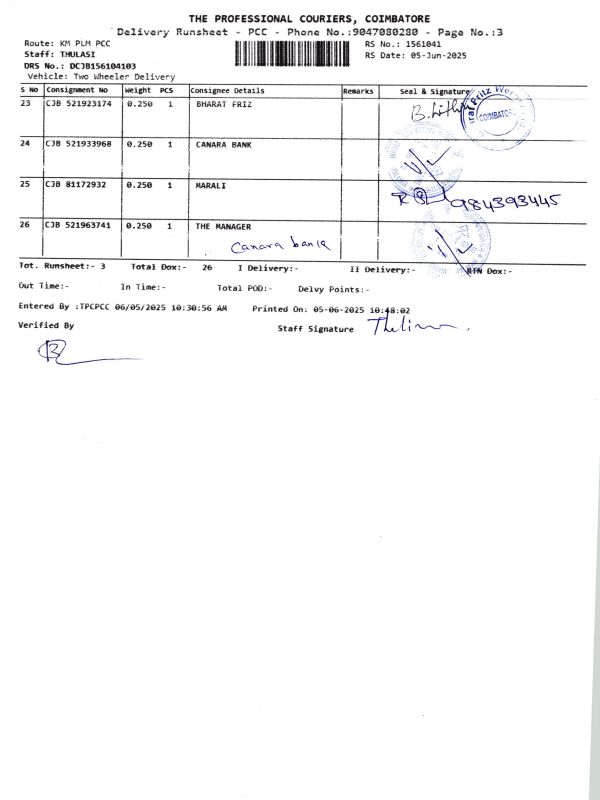 THE PROFESSIONAL COURIERS, COIMBATORE
Delivery Runsheet - PCC - Phone No.:9047080280 - Page No.:3
Route: KM PLM PCC RS No.: 1561041
Staff: THULASI RS Date: 05-Jun-2025
DRS No.: DCJB156104103
Vehicle: Two Wheeler Delivery
S No Consignment No Weight PCS Consignee Details Remarks Seal & Signature
23 CJB 521923174 0.250 1 BHARAT FRIZ
COIMBATORE
24 CJB 521933968 0.250 1 CANARA BANK
25 CJB 81172932 0.250 1 MARALI
984393445
26 CJB 521963741 0.250 1 THE MANAGER
Canara bank
Tot. Runsheet:- 3 Total Dox:- 26 I Delivery:- II Delivery:- RTN Dox:-
Out Time:- In Time:- Total POD:- Delvy Points:-
Entered By :TPCPCC 06/05/2025 10:30:56 AM Printed On: 05-06-2025 10:48:02
Verified By Staff Signature